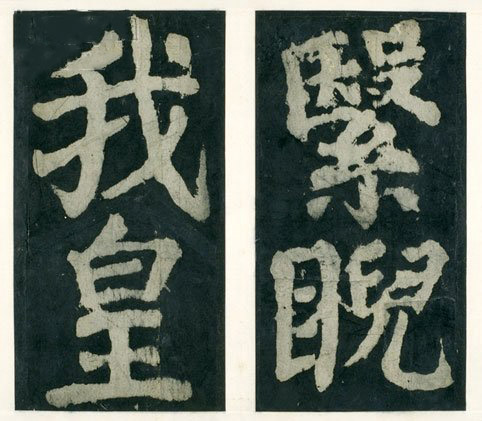 繄睨
我皇